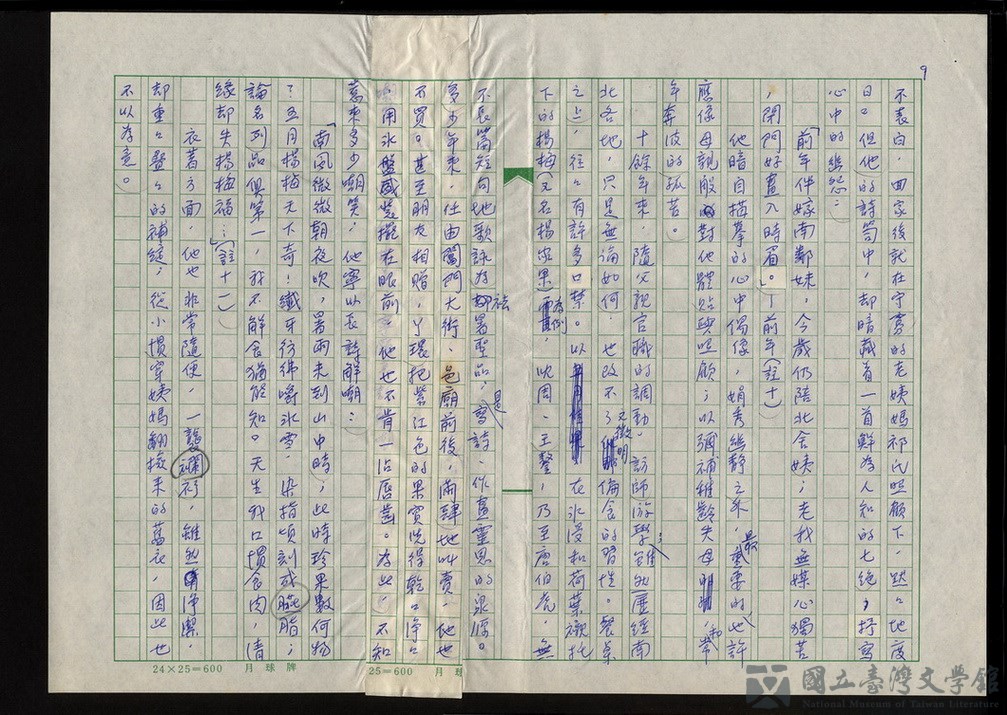 9
不表白，回家後就在守寡的老姨媽祁氏照顧下，默々地度
日。但他的詩筒中，却暗藏着一首鮮為人知的七絕，抒寫
心中的幽怨：
「前年伴嫁南鄰妹，今歲仍陪北舍姨；老我無媒心獨苦
，閉門好畫入時眉。」—前年(註十)
他暗自描摹的心中偶像，娟秀幽靜之外，最重要的，也許
應係母親般對他體貼與照顧；以彌補稚齡失母和常
年奔波的孤苦。
十餘年來，隨父親官職的調動，訪師游學，雖然歷經南
北各地，只是無論如何，也改不了文徵明偏食的習性。餐桌
之上，往々有許多口禁。以在冰浸和荷葉襯托
下的楊梅(又名楊家果)為例，沈周、王鏊，乃至唐伯虎，無
不長篇短句地歌詠為祛暑聖品，是寫詩、作畫靈思的泉源。
多少年來，任由閶門大街、邑廟前後，滿肆地叫賣，他也
不買。甚至朋友相贈，丫環把紫紅色的果實洗得乾々淨々
，用冰盤盛裝擺在眼前，他也不肯一沾唇齒。為此，不知
惹來多少嘲笑，他寧以長詩解嘲：
「南風微微朝夜吹，暑雨未到山中時；此時珍果數何物
？五月楊梅天下奇！纖牙彷彿嚼冰雪，染指頃刻成臙脂；
論名列品俱第一，我不解食猶能知。天生我口慣食肉，清
緣却失楊梅福…」(註十一)
衣着方面，他也非常隨便，一襲襴衫，雖然淨潔，
却重々疊々的補綻，從小慣穿姨媽翻撿來的舊衣，因此也
不以為意。
24×25=600 月球牌
25=600 月球
國立臺灣文學館
National Museum of Taiwan Literature